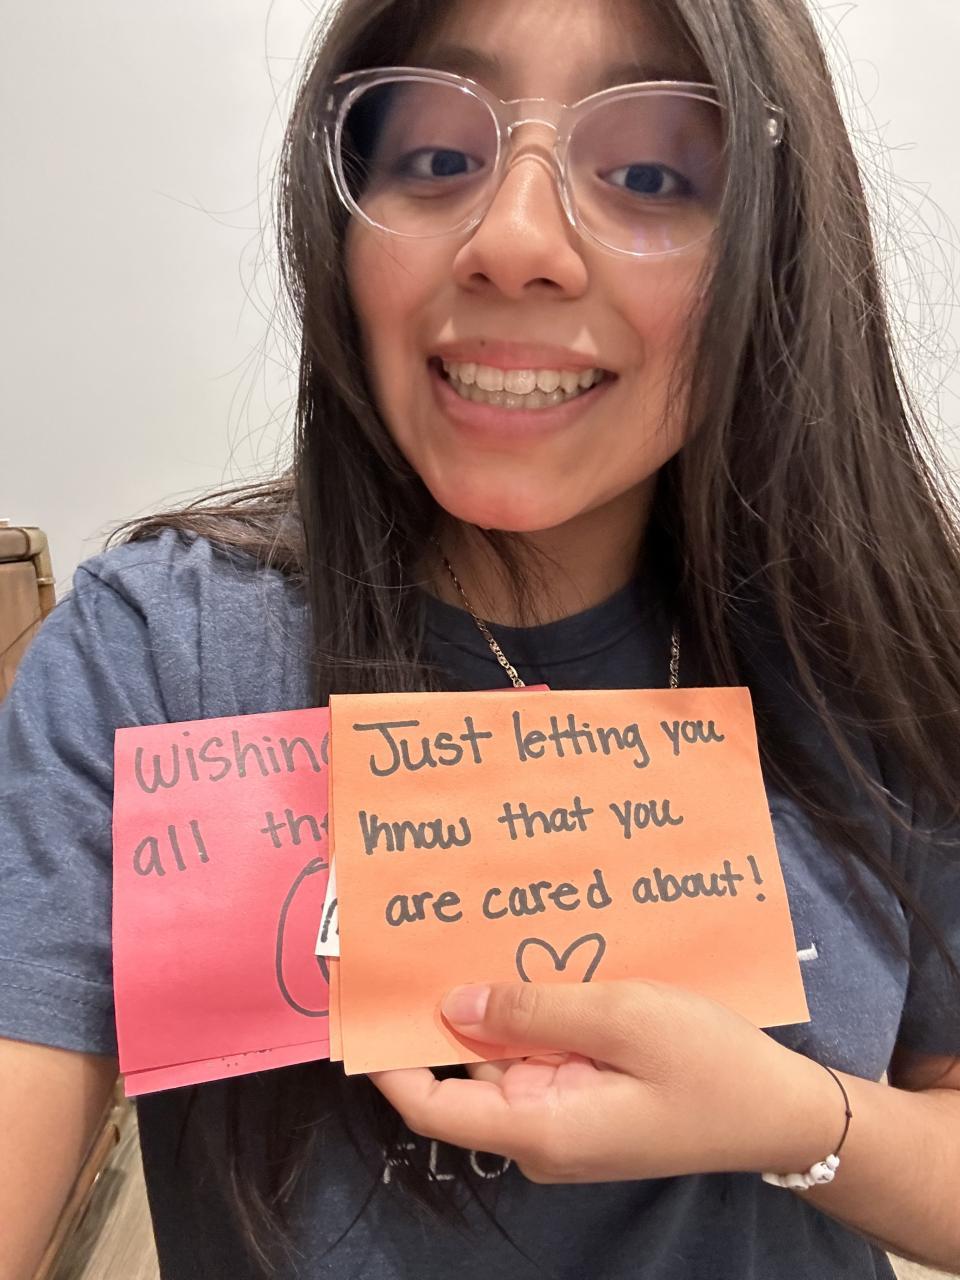 Wishing
all the
Just letting you
know that you
are cared about!
FLO